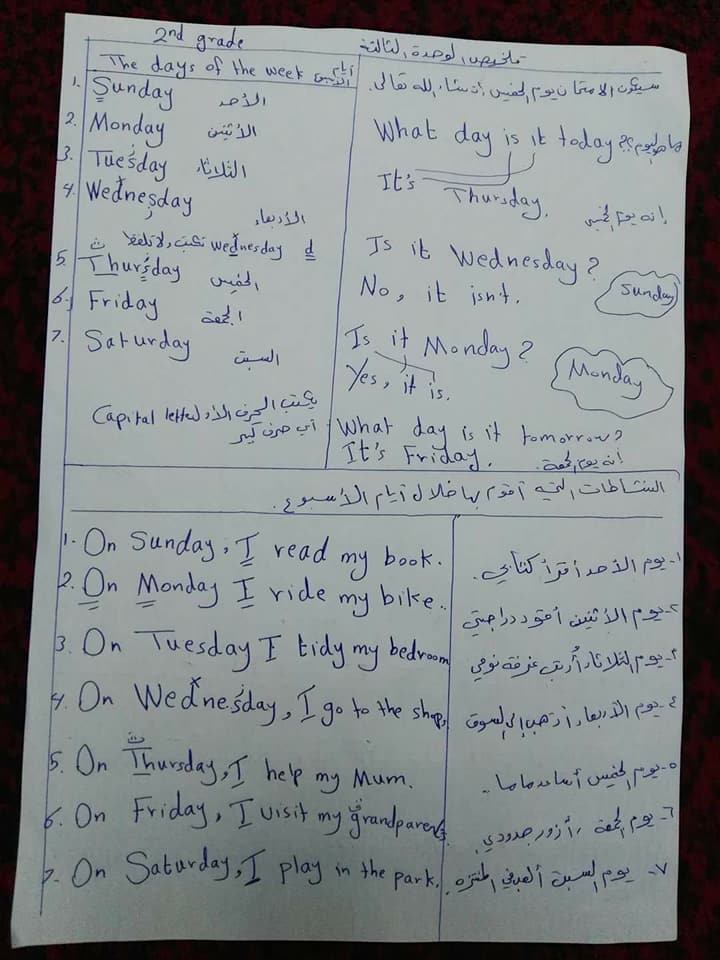 2nd grade
ملخص الوحدة الثالثة
The days of the week أيام
1. Sunday الأحد
2. Monday الأثنين
3. Tuesday الثلاثاء
4. Wednesday
الأربعاء
d Wednesday تكتب ولا تلفظ
ث
5. Thursday الخميس
6. Friday الجمعة
7. Saturday السبت
يكتب الحرف الأول Capital letter
أي حرف كبير
سيكون الامتحان يوم الخميس أن شاء الله تعالى.
What day is it today? ما هو اليوم؟
It's Thursday. إنه يوم الخميس
Is it Wednesday?
No, it isn't. Sunday
Is it Monday?
Yes, it is. Monday
What day is it tomorrow?
It's Friday. إنه يوم الجمعة.
النشاطات التي أقوم بها خلال أيام الأسبوع.
1. On Sunday, I read my book. ١- يوم الأحد أقرأ كتابي.
2. On Monday I ride my bike.. ٢- يوم الأثنين أقود دراجتي
3. On Tuesday I tidy my bedroom ٣- يوم الثلاثاء أرتب غرفة نومي
4. On Wednesday, I go to the shops, ٤- يوم الأربعاء أذهب إلى السوق
ث
5. On Thursday, I help my Mum. ٥- يوم الخميس أساعد ماما..
6. On Friday, I visit my grandparents. ٦- يوم الجمعة, أزور جدودي
7- On Saturday, I play in the park. ٧- يوم السبت ألعب في المنتزه.